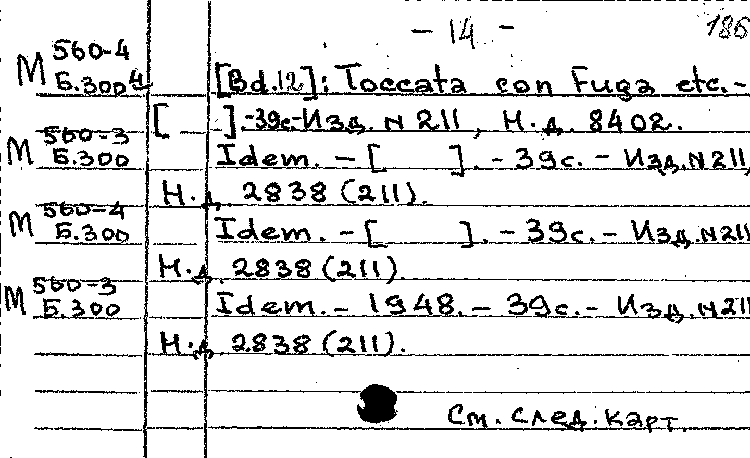 - 14 -
186
М 560-4
Б.300ч [Bd.12]: Toccata con Fuga etc.-
[ ].-39с.-Изд. N 211, Н.д. 8402.
М 560-3
Б.300 Idem. - [ ]. - 39с. - Изд.N211,
Н.д. 2838 (211).
М 560-4
Б.300 Idem. - [ ]. - 39с. - Изд.N211
Н.д. 2838 (211)
М 560-3
Б.300 Idem. - 1948. - 39с. - Изд.N211
Н.д. 2838 (211).
См. след. карт.